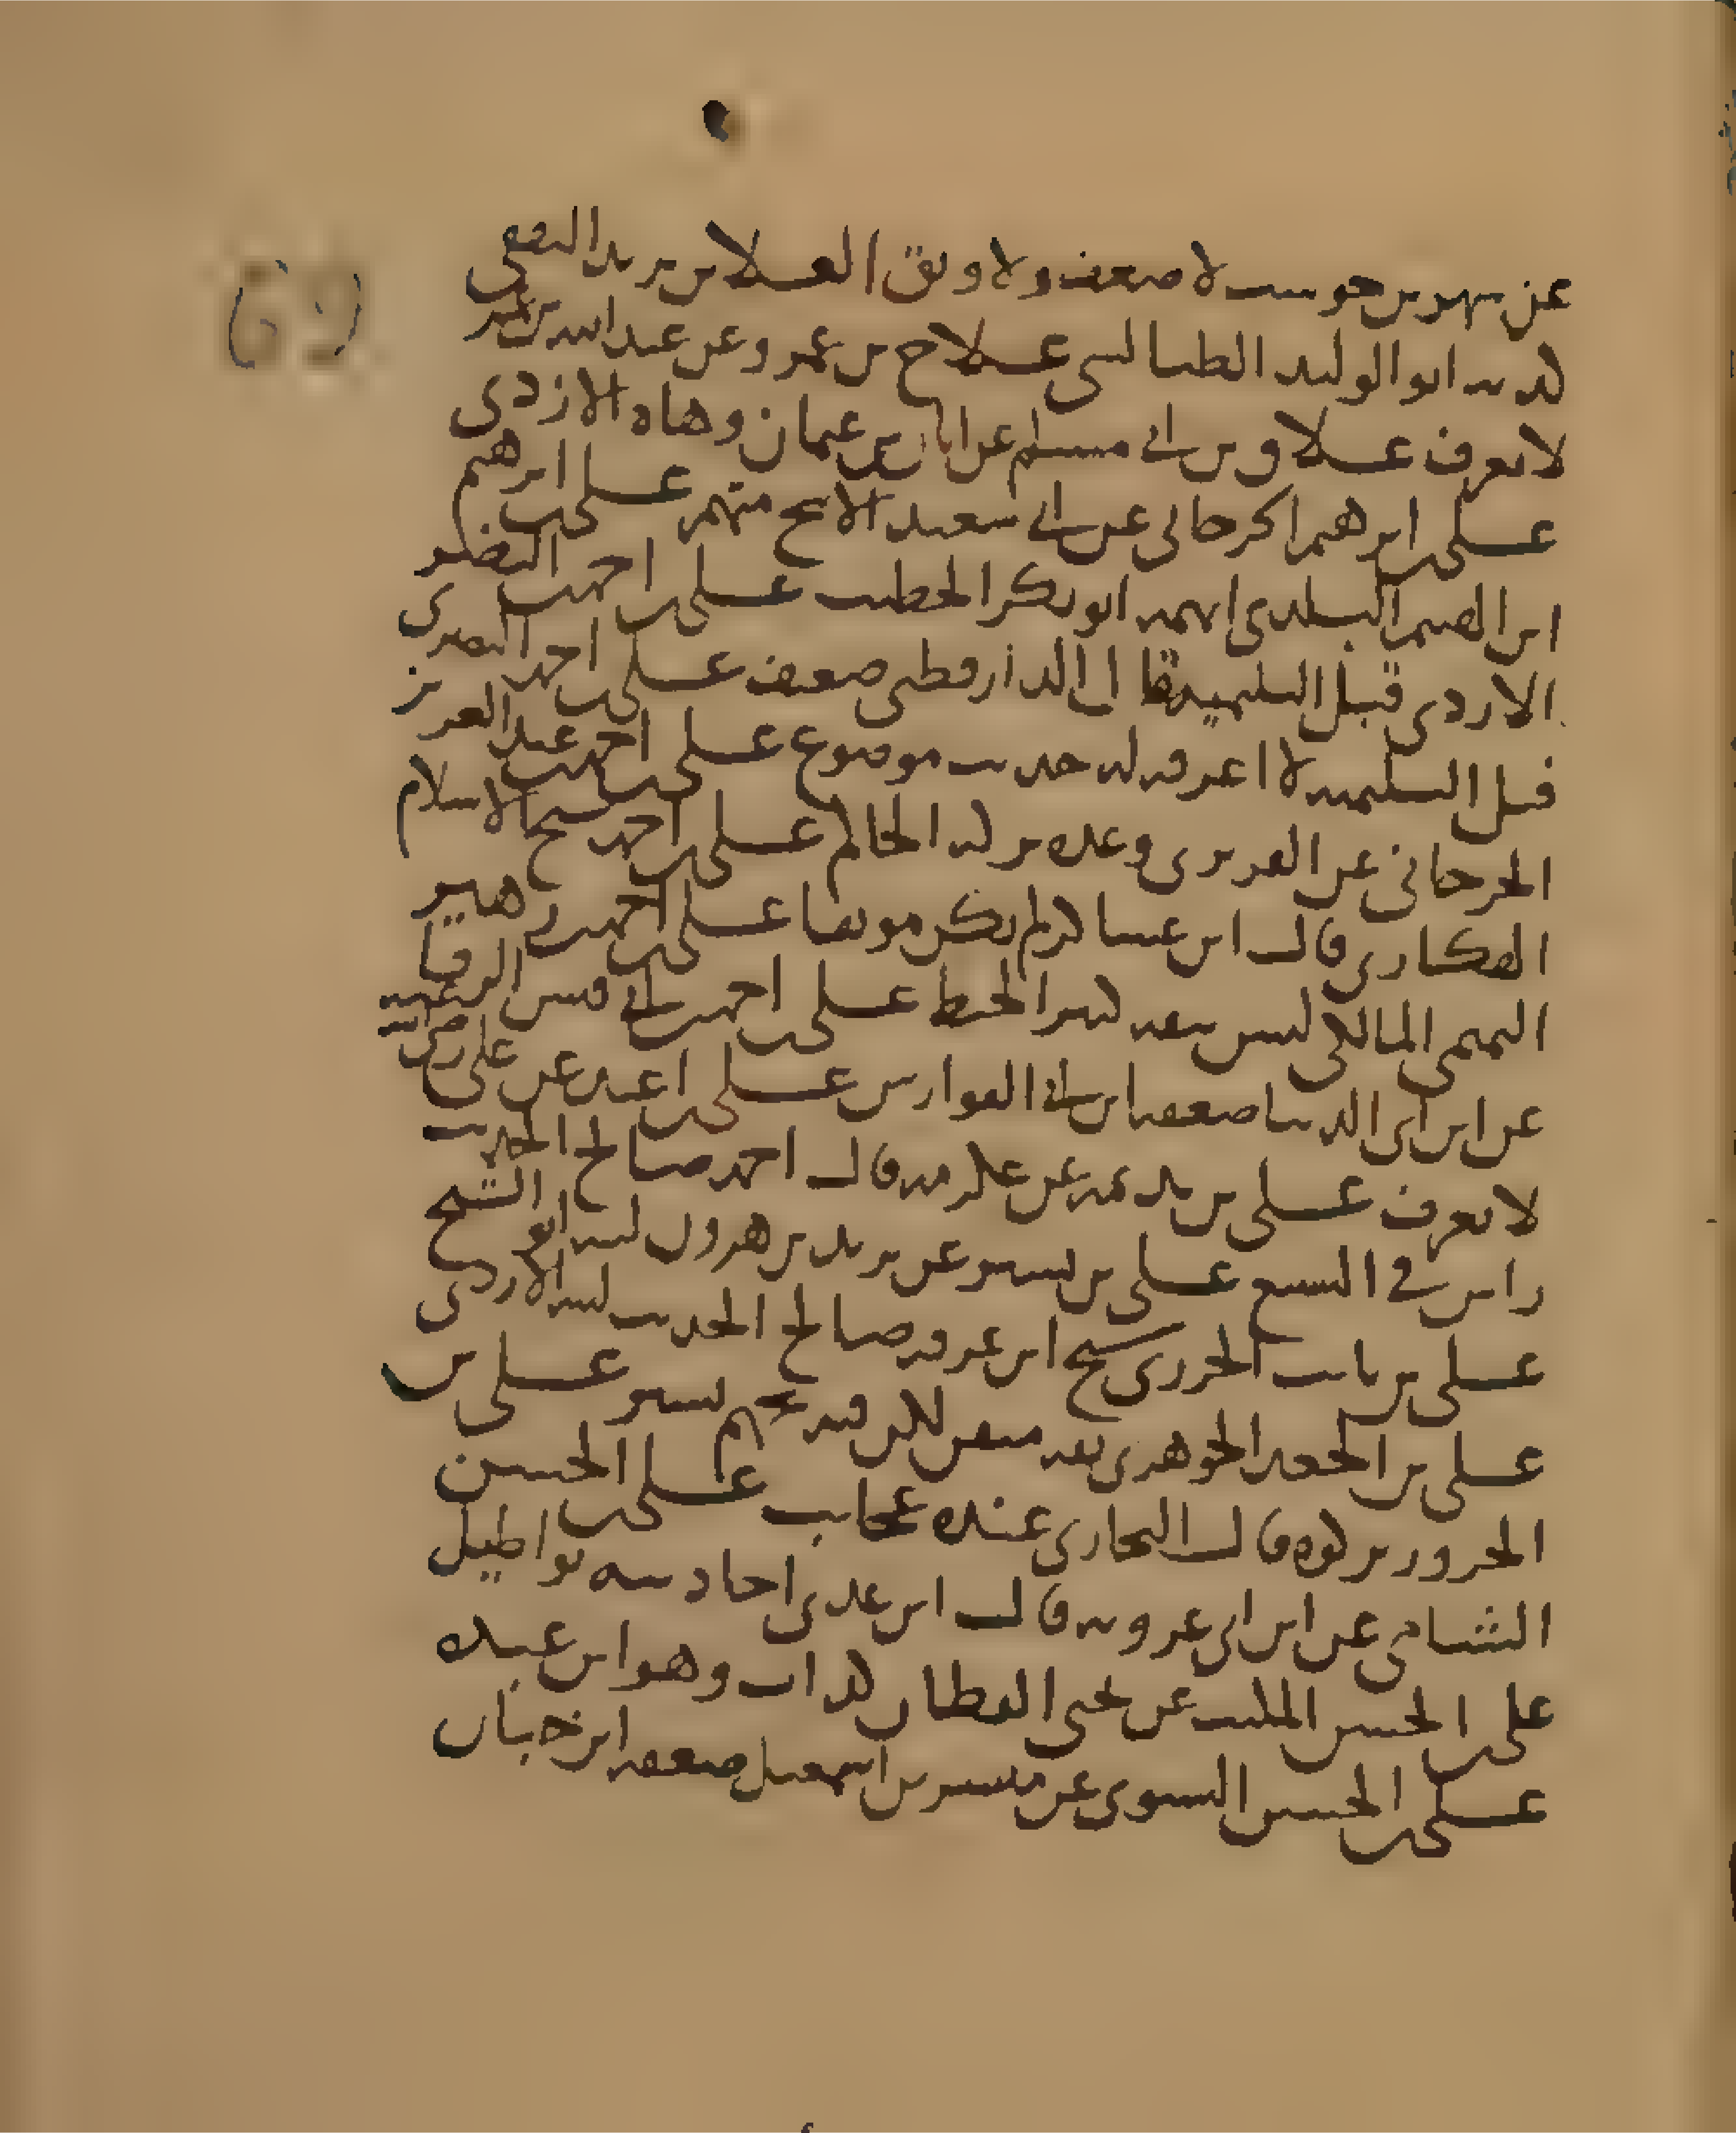 عن شهر بن حوشب لا ضعف ولا وثق العلا بن يزيد الثقفي
كذبه ابو الوليد الطيالسي علاج بن عمرو عن عبد الله بن عمر
لا يعرف علاق بن ابي مسلم عن ابان بن عثمان وهاه الازدي
علي بن ابرهيم الجرجاني عن ابي سعيد الاشج متهم علي بن ابرهيم
ابن الهيثم البلدي اتهمه ابو بكر الخطيب علي بن احمد بن النضر
الازدي قبل الستمية قال الدارقطني ضعيف علي بن احمد البصري
قبل الستمية لا اعرفه له حديث موضوع علي بن احمد بن عبد العزيز
الجرجاني عن الفربري وعده تركه الحاكم علي بن احمد شيخ الاسلام
الهكاري قال ابن عساكر لم يكن موثقا علي بن احمد بن زهير
التميمي المالكي ليس بثقة علي بن احمد بن ابي قيس الرفا
عن ابن ابي الدنيا ضعفه ابن ابي الفوارس علي بن اعبد عن علي رضي الله عنه
لا يعرف علي بن بذيمة عن عكرمة قال احمد صالح الحديث
راس في التشيع علي بن بشير عن يزيد بن هرون لينه ابو الشيخ
علي بن ثابت الجزري شيخ ابن عرفة صالح الحديث لينه الازدي
علي بن الجعد الجوهري ثقة متقن لكن فيه تجهم يسير علي بن
الحزور تركوه قال البخاري عنده عجايب علي بن الحسن
الشامي عن ابن ابي عروبة قال ابن عدي احاديثه بواطيل
علي بن الحسن المكتب عن يحيى القطان كذاب وهو ابن عبده
علي بن الحسن النسوي عن مبشر بن اسمعيل ضعفه ابن حبان